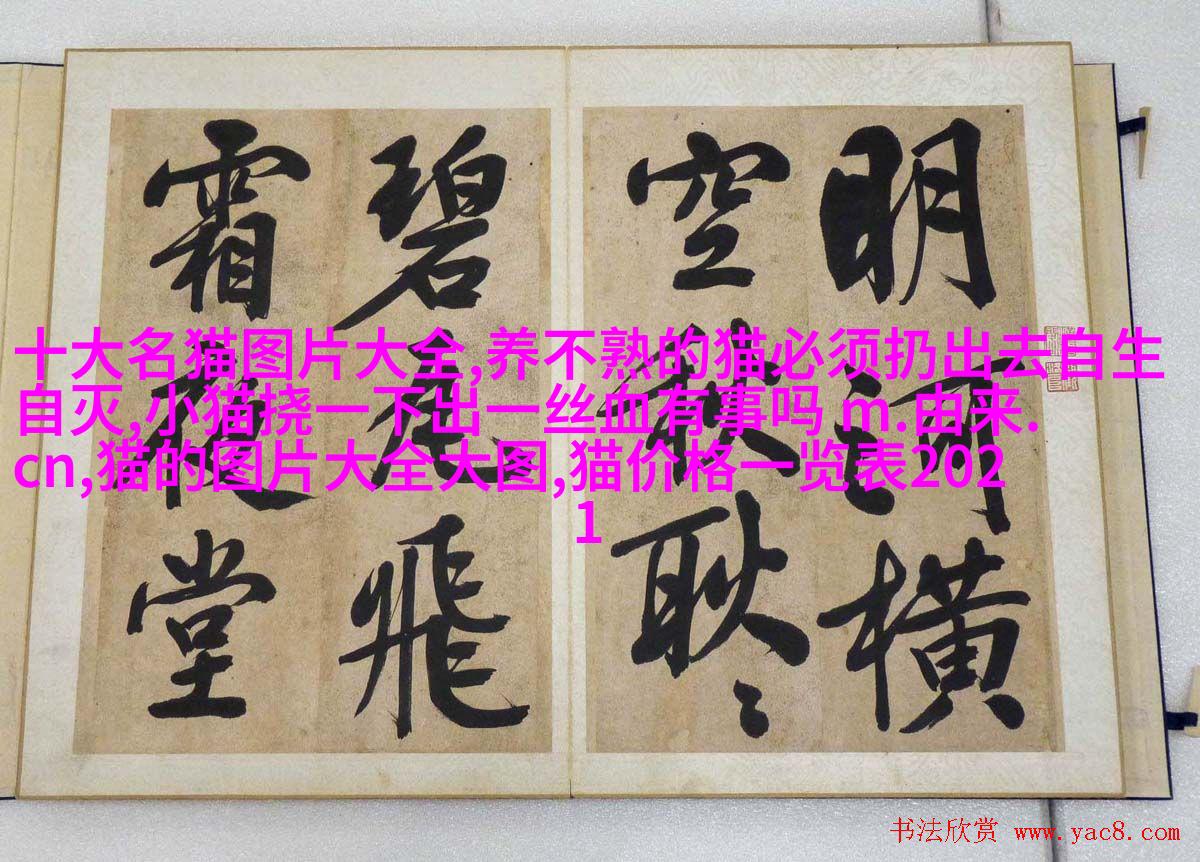 明河橫
空秋耿〻
碧瓦飛
霜夜堂
十大名猫图片大全,养不熟的猫必须扔出去自生
自灭,小猫挠一下出一丝血有事吗 m.由来.
cn,猫的图片大全大图,猫价格一览表202
1
书法欣赏 www.yac8.com